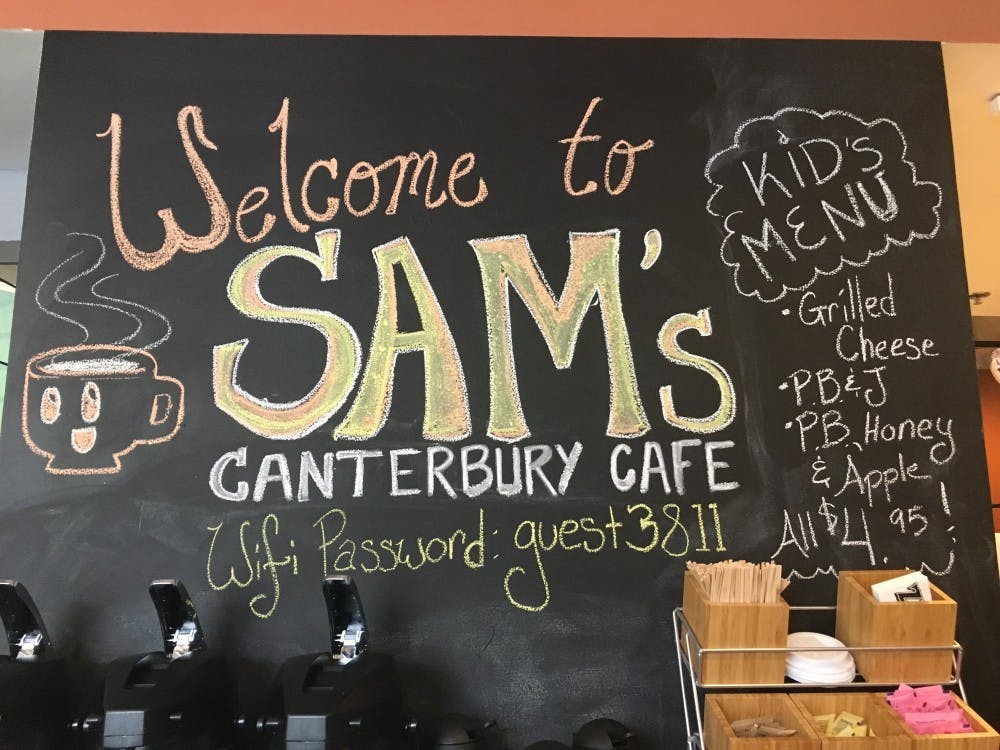 Welcome to
SAM's
CANTERBURY CAFE
Wifi Password: guest3811
KID'S
MENU
• Grilled
Cheese
• P.B & J
• P.B, Honey
& Apple
All $4.95!